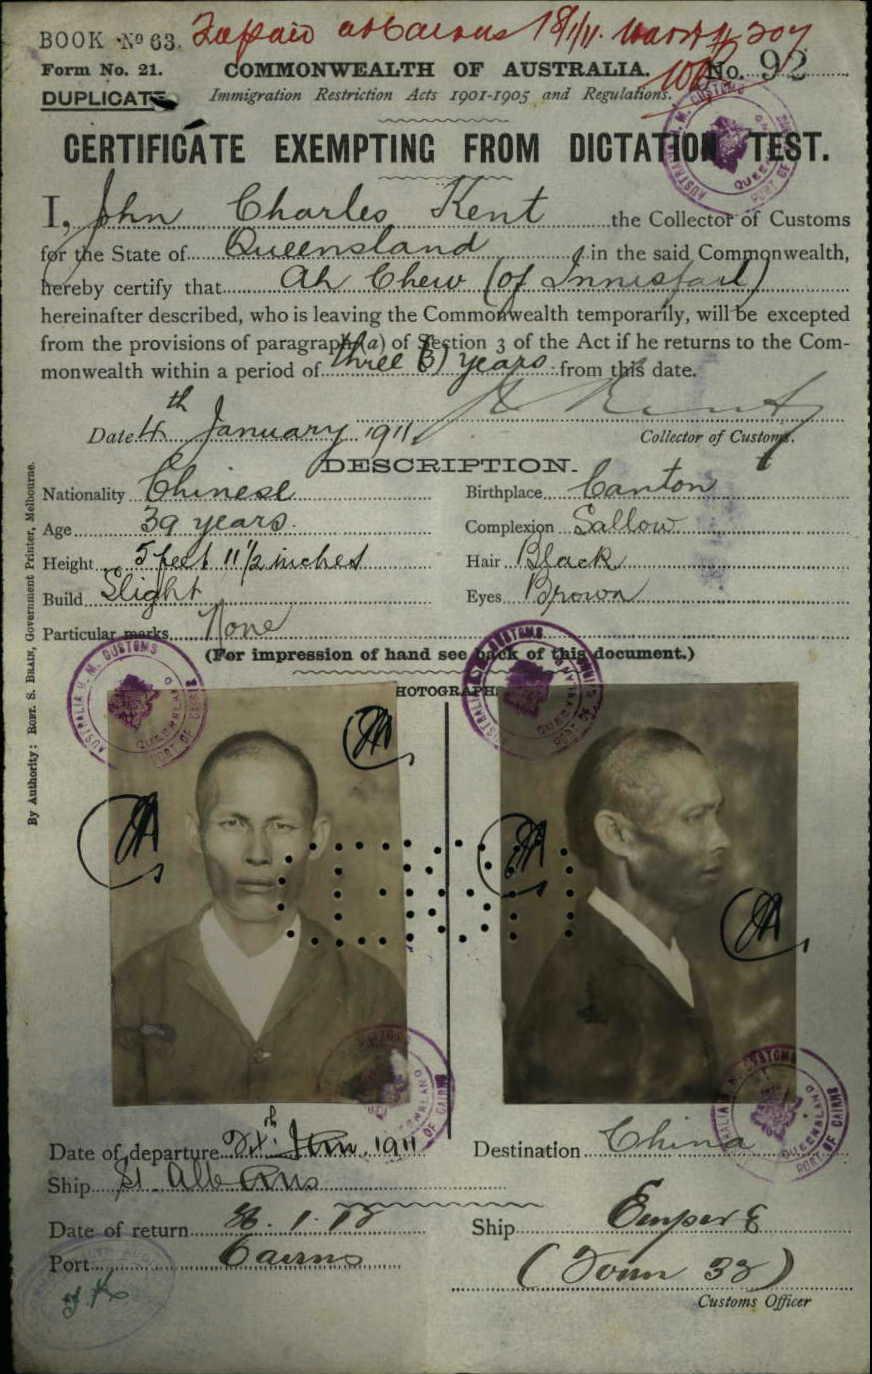 BOOK Nº 63.
Form No. 21. COMMONWEALTH OF AUSTRALIA. No. 92
DUPLICATE Immigration Restriction Acts 1901-1905 and Regulations.
CERTIFICATE EXEMPTING FROM DICTATION TEST.
I, John Charles Kent the Collector of Customs
for the State of Queensland in the said Commonwealth,
hereby certify that Ah Chew (of Innisfail)
hereinafter described, who is leaving the Commonwealth temporarily, will be excepted
from the provisions of paragraph (a) of Section 3 of the Act if he returns to the Com-
monwealth within a period of three (3) years from this date.
Date 4th January 1911.
Collector of Customs.
DESCRIPTION.
Nationality Chinese Birthplace Canton
Age 39 years. Complexion Sallow
Height 5 feet 11½ inches Hair Black
Build Slight Eyes Brown
Particular marks None
(For impression of hand see back of this document.)
PHOTOGRAPHS
By Authority: ROBT. S. BRAIN, Government Printer, Melbourne.
Date of departure 1911 Destination China
Ship St. Albans
Date of return Ship Empire
Port Cairns (
Customs Officer
H. M. CUSTOMS AUSTRALIA QUEENSLAND PORT OF CAIRNS